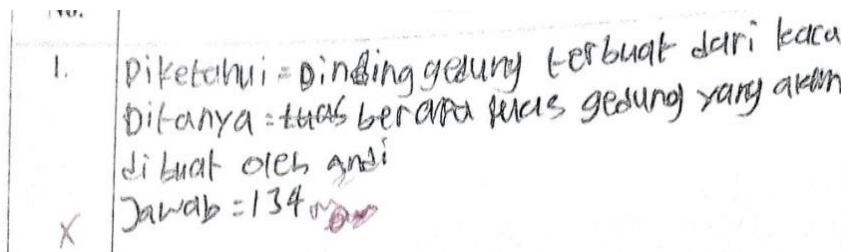 1. Diketahui = Dinding gedung terbuat dari kaca
Ditanya = berapa luas gedung yang akan
dibuat oleh andi
Jawab = 134
X